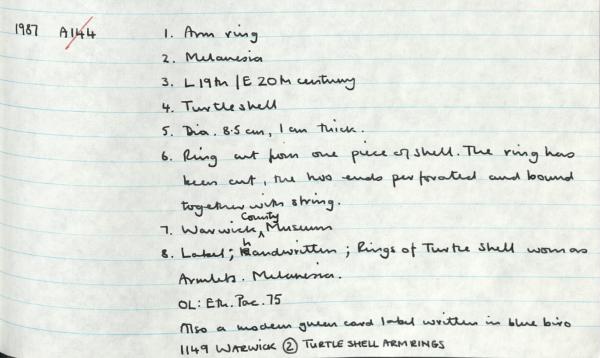 1987 A144 1. Arm ring
2. Melanesia
3. L 19th / E 20th century
4. Turtleshell
5. Dia. 8.5 cm, 1 cm thick.
6. Ring cut from one piece of shell. The ring has
been cut, the two ends perforated and bound
together with string.
7. Warwick County Museum
8. Label; handwritten; Rings of Turtle Shell worn as
Armlets. Melanesia.
OL: Eth. Pac. 75
Also a modern green card label written in blue biro
1149 WARWICK ② TURTLE SHELL ARMRINGS